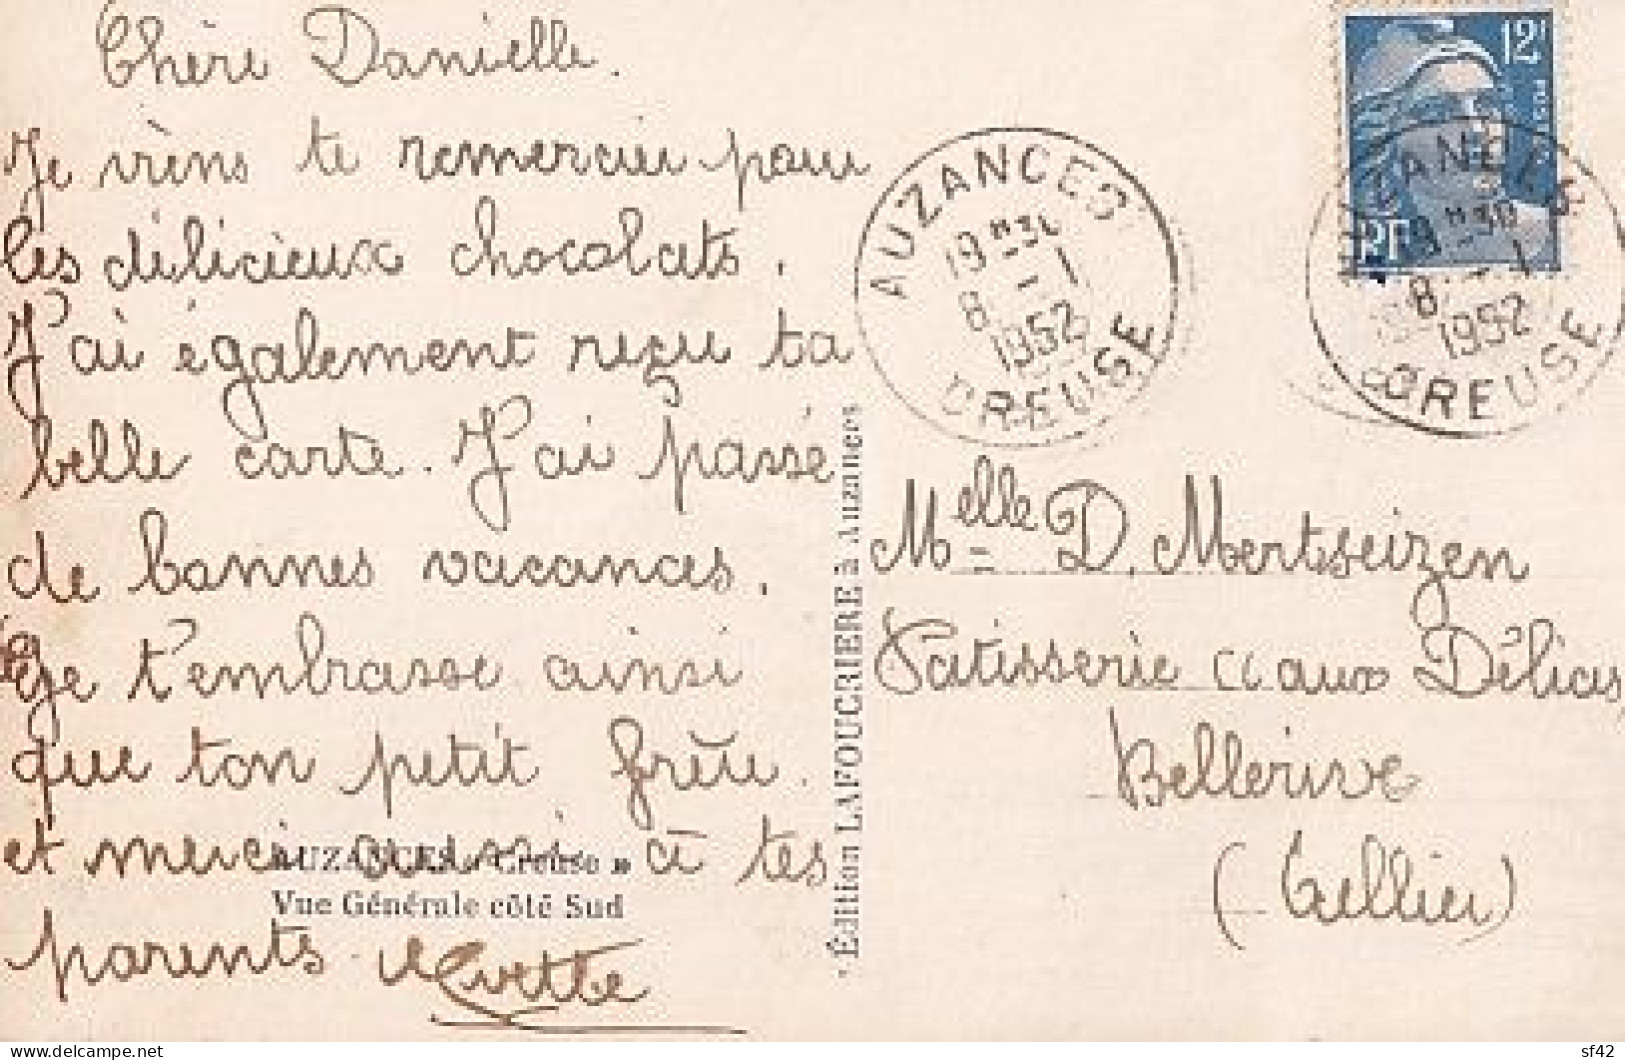 Chère Danielle.
Je viens te remercier pour
les délicieux chocolats.
J'ai également reçu ta
belle carte. J'ai passé
de bonnes vacances.
Je t'embrasse ainsi
que ton petit frère.
et merci aussi à tes
parents.
Yvette
AUZANCES « Creuse »
Vue Générale côté Sud
Édition LAFOUCRIERE à Auzances
AUZANCES
19 H 30
8 - 1
1952
CREUSE
12F
RF
AUZANCES
19 H 30
8 - 1
1952
CREUSE
Melle D. Mertseizen
Patisserie aux Délices
Bellerive
(Allier)
delcampe.net
sf42